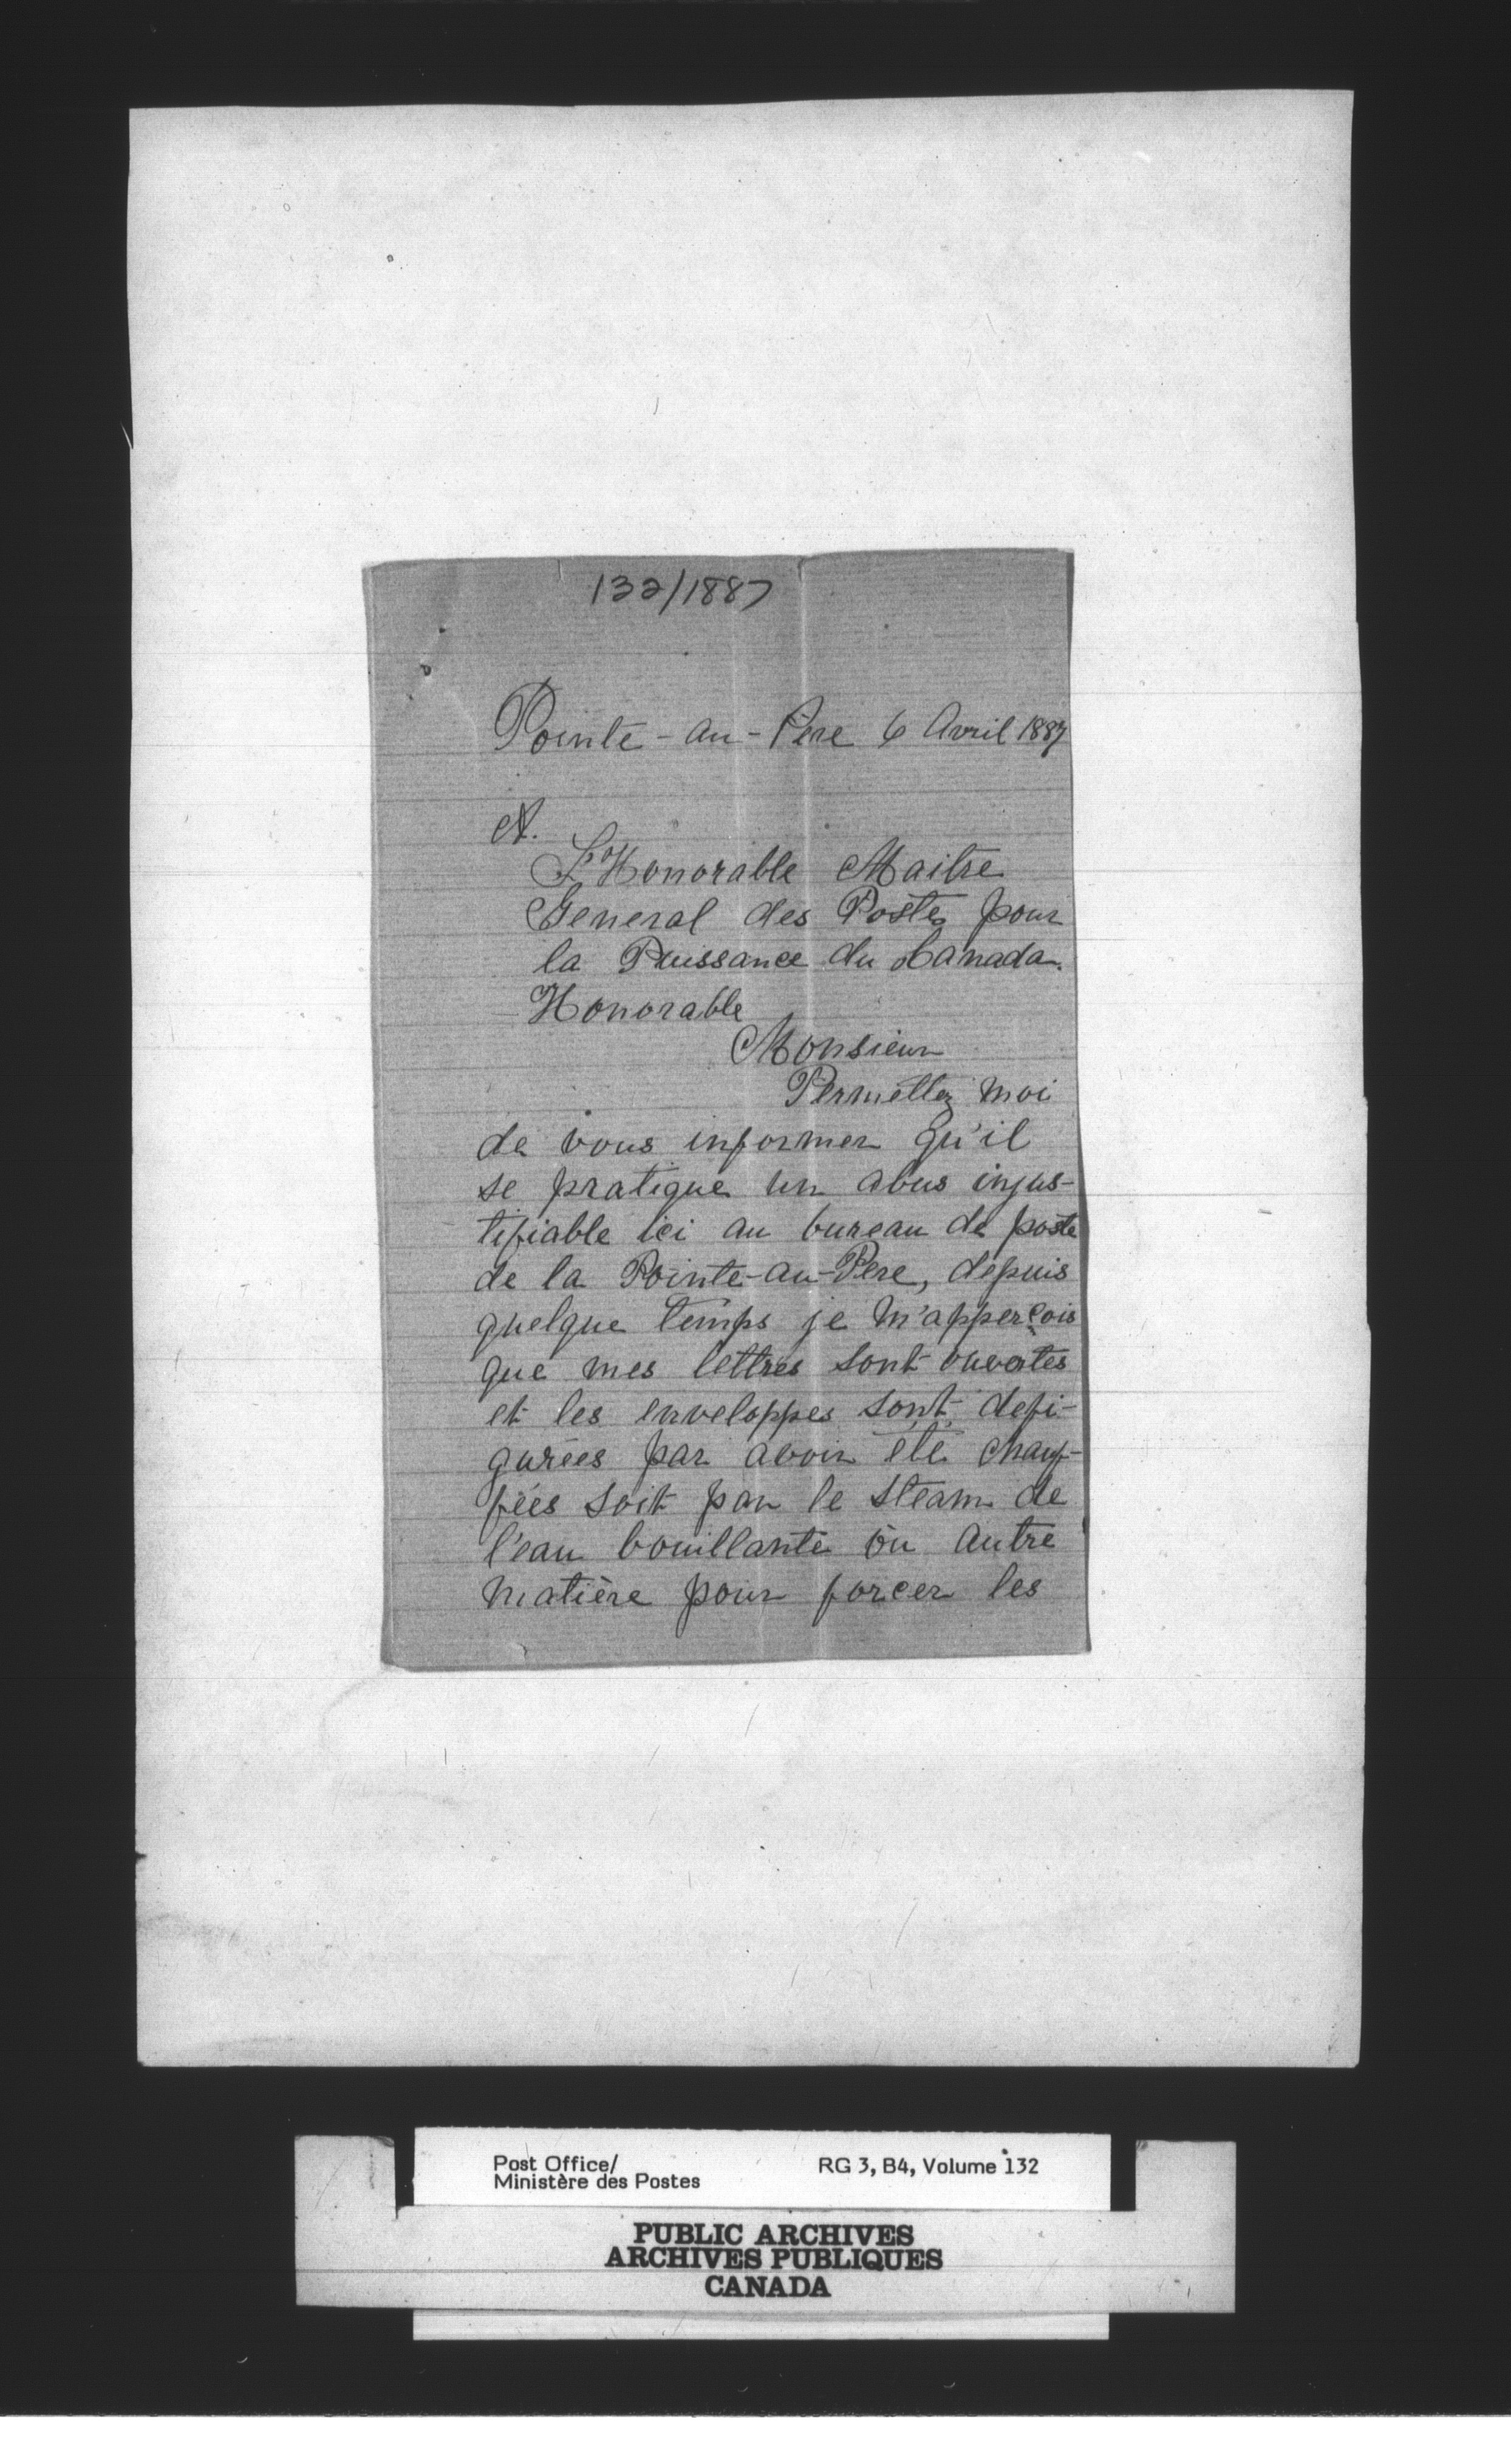 132/1887
Pointe-au-Père 6 Avril 1887
A.
L'Honorable Maitre
General des Postes pour
la Puissance du Canada.
Honorable
Monsieur
Permettez moi
de vous informer qu'il
se pratique un abus injus-
tifiable ici au bureau de poste
de la Pointe-au-Pere, depuis
quelque temps je m'apperçois
que mes lettres sont ouvertes
et les enveloppes sont defi-
gurées par avoir été chauf-
fées soit par le steam de
l'eau bouillante ou autre
matière pour forcer les
Post Office/
Ministère des Postes
RG 3, B4, Volume 132
PUBLIC ARCHIVES
ARCHIVES PUBLIQUES
CANADA